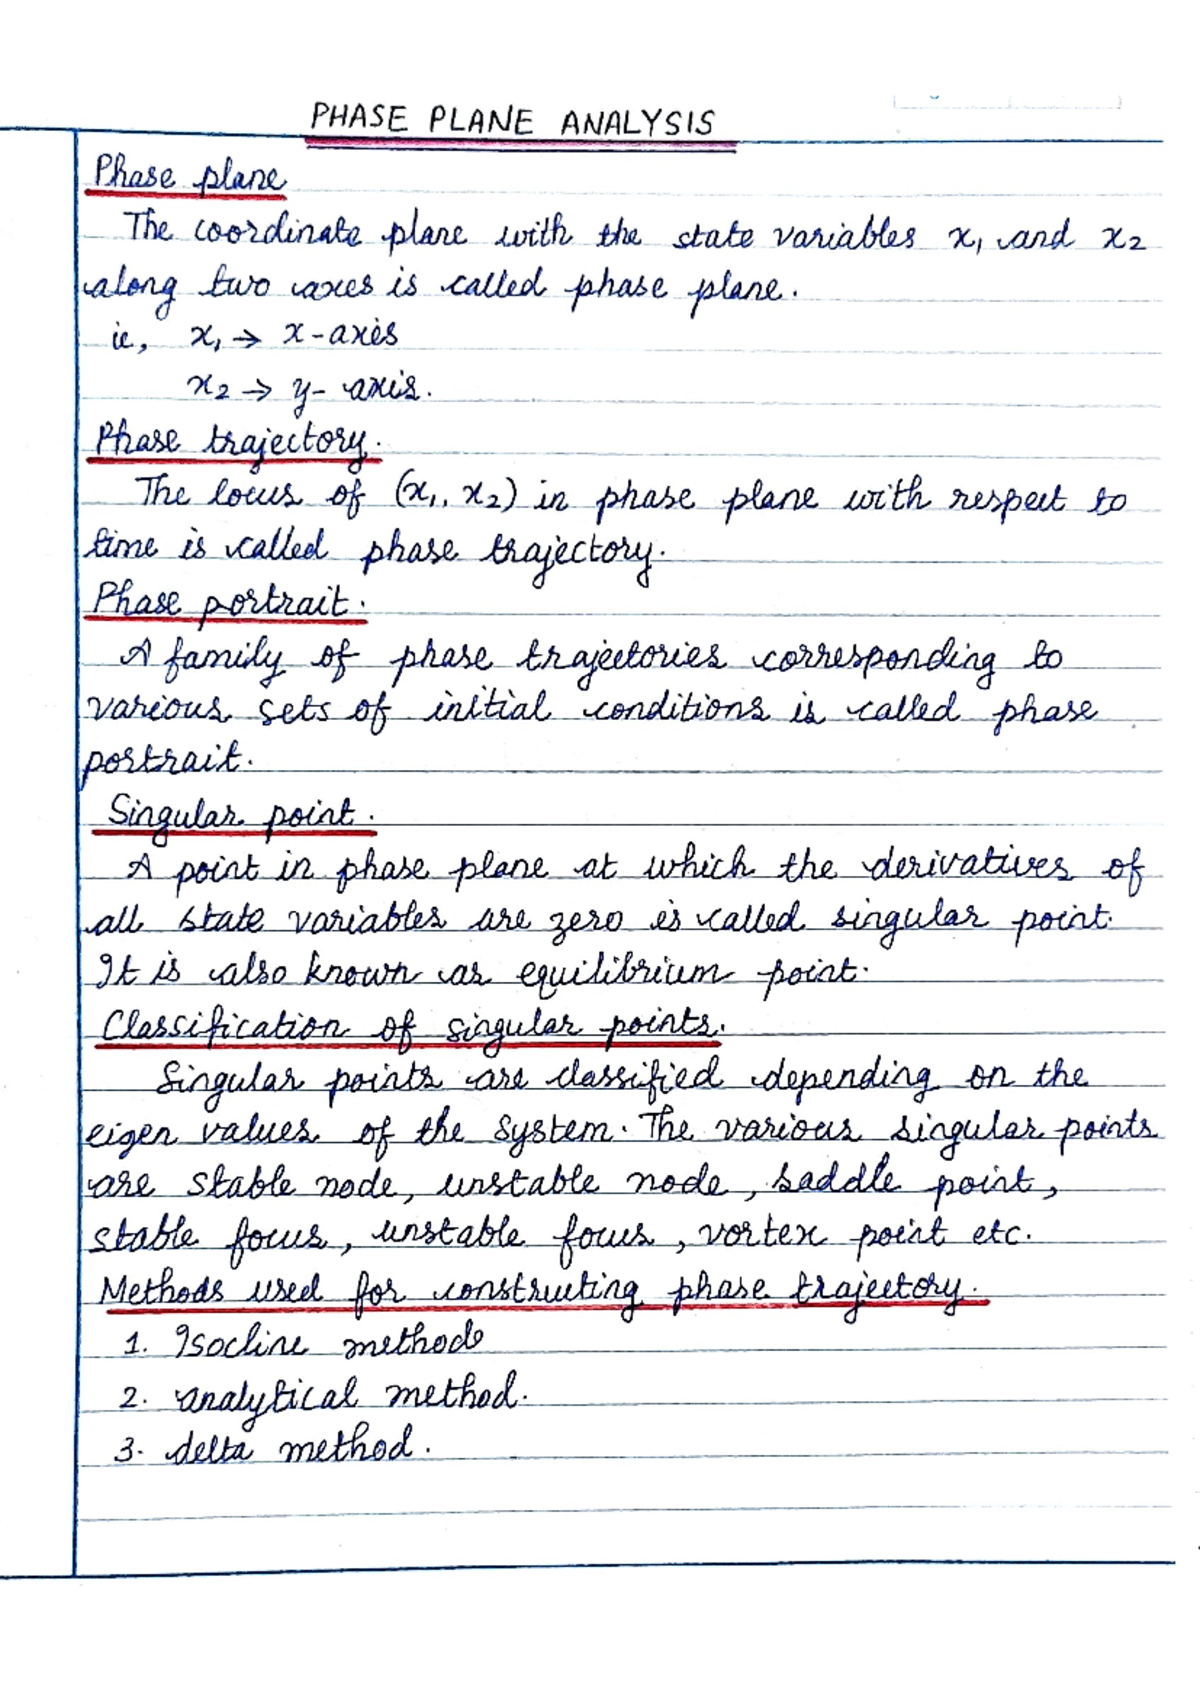 PHASE PLANE ANALYSIS
Phase plane
The coordinate plane with the state variables x₁ and x₂
along two axes is called phase plane.
ie, x₁ → x-axis
x₂ → y-axis.
Phase trajectory.
The locus of (x₁, x₂) in phase plane with respect to
time is called phase trajectory.
Phase portrait.
A family of phase trajectories corresponding to
various sets of initial conditions is called phase
portrait.
Singular point.
A point in phase plane at which the derivatives of
all state variables are zero is called singular point.
It is also known as equilibrium point.
Classification of singular points.
Singular points are classified depending on the
eigen values of the system. The various singular points
are stable node, unstable node, saddle point,
stable focus, unstable focus, vortex point etc.
Methods used for constructing phase trajectory.
1. Isocline method
2. analytical method.
3. delta method.